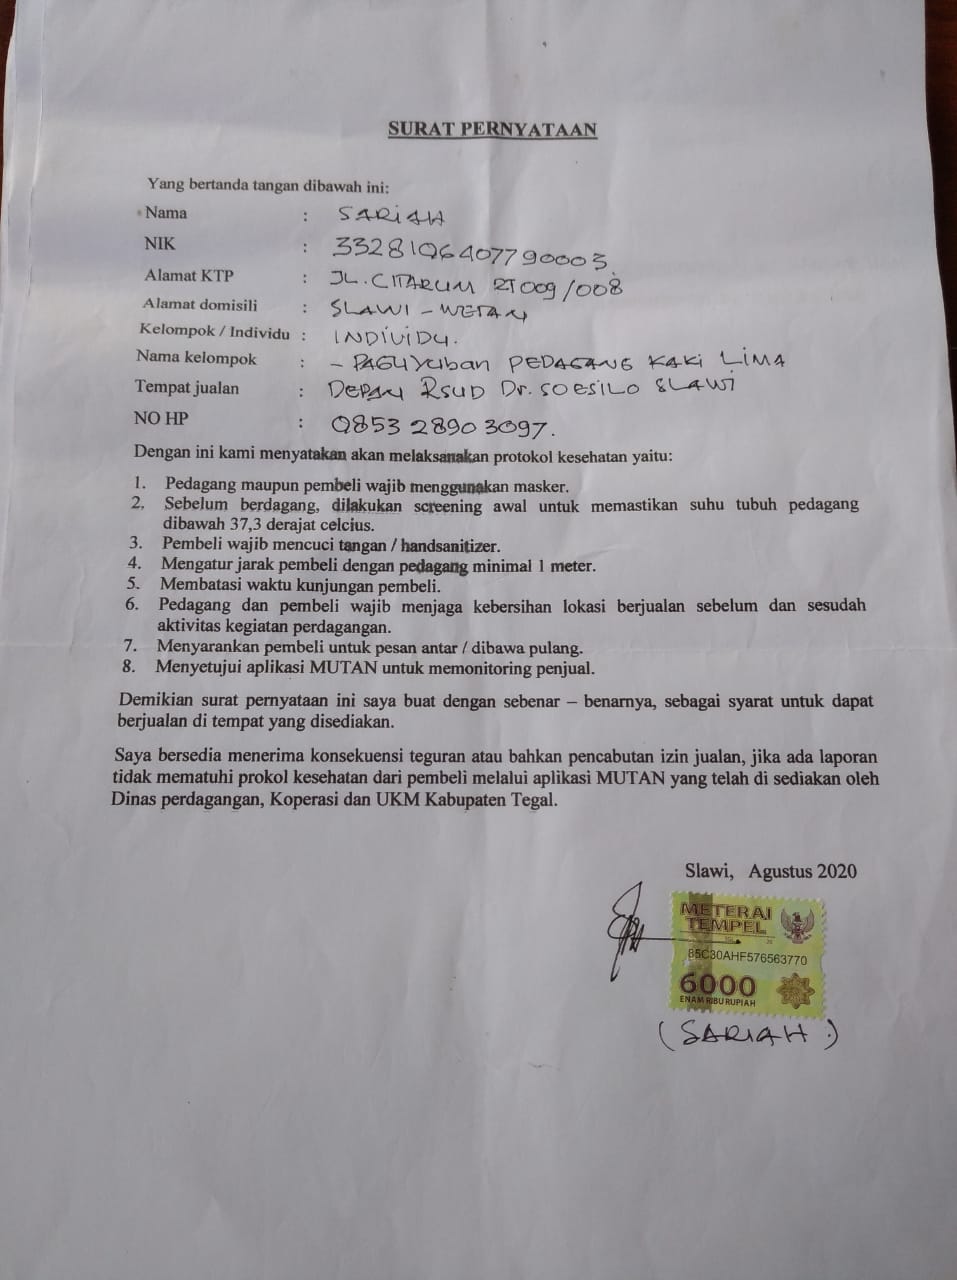 SURAT PERNYATAAN
Yang bertanda tangan dibawah ini:
Nama : SARIAH
NIK : 3328106407790003
Alamat KTP : JL. CITARUM RT 009/008
Alamat domisili : SLAWI - WETAN
Kelompok / Individu : INDIVIDU.
Nama kelompok : - PAGUYUban PEDAGANG KAKI LIMA
Tempat jualan : DEPAN RSUD Dr. SOESILO SLAWI
NO HP : 0853 2890 3097.
Dengan ini kami menyatakan akan melaksanakan protokol kesehatan yaitu:
1. Pedagang maupun pembeli wajib menggunakan masker.
2. Sebelum berdagang, dilakukan screening awal untuk memastikan suhu tubuh pedagang
dibawah 37,3 derajat celcius.
3. Pembeli wajib mencuci tangan / handsanitizer.
4. Mengatur jarak pembeli dengan pedagang minimal 1 meter.
5. Membatasi waktu kunjungan pembeli.
6. Pedagang dan pembeli wajib menjaga kebersihan lokasi berjualan sebelum dan sesudah
aktivitas kegiatan perdagangan.
7. Menyarankan pembeli untuk pesan antar / dibawa pulang.
8. Menyetujui aplikasi MUTAN untuk memonitoring penjual.
Demikian surat pernyataan ini saya buat dengan sebenar – benarnya, sebagai syarat untuk dapat
berjualan di tempat yang disediakan.
Saya bersedia menerima konsekuensi teguran atau bahkan pencabutan izin jualan, jika ada laporan
tidak mematuhi prokol kesehatan dari pembeli melalui aplikasi MUTAN yang telah di sediakan oleh
Dinas perdagangan, Koperasi dan UKM Kabupaten Tegal.
Slawi, Agustus 2020
METERAI
TEMPEL
85C30AHF576563770
6000
ENAM RIBU RUPIAH
(SARIAH.)